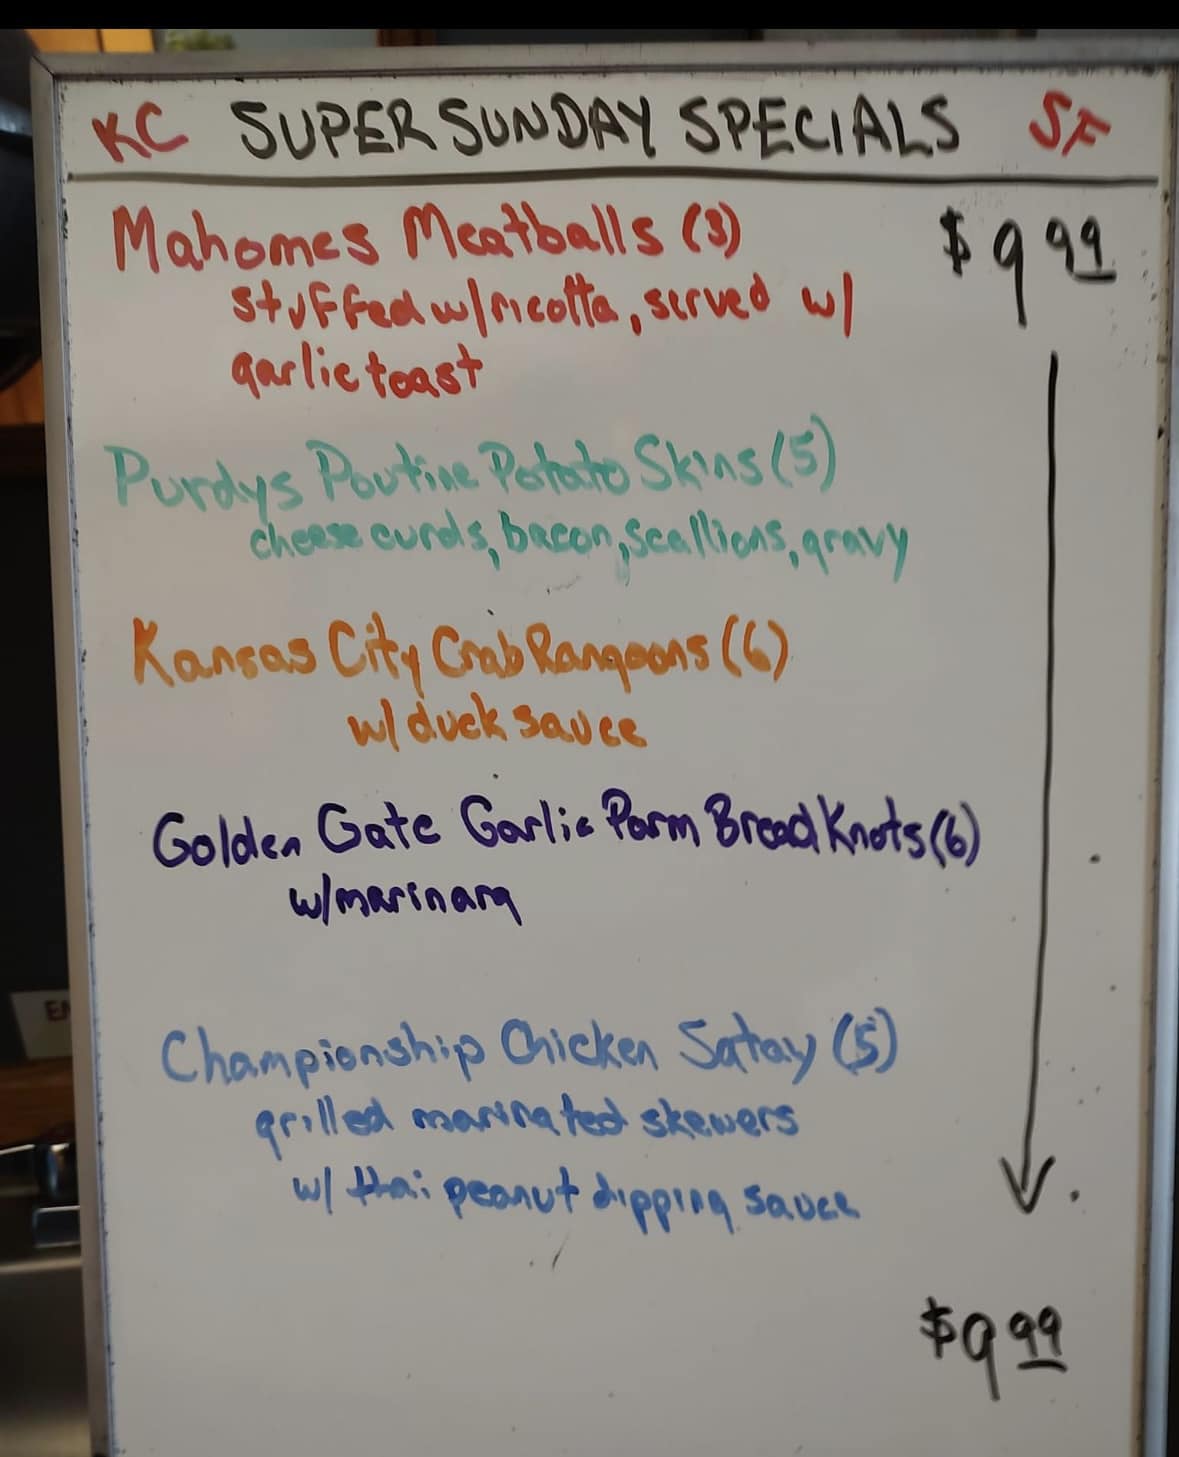 KC SUPER SUNDAY SPECIALS SF
Mahomes Meatballs (3) $9.99
stuffed w/ricotta, served w/
garlic toast
Purdys Poutine Potato Skins (5)
cheese curds, bacon, scallions, gravy
Kansas City Crab Rangoons (6)
w/ duck sauce
Golden Gate Garlic Parm Bread Knots (6)
w/marinara
Championship Chicken Satay (5)
grilled marinated skewers
w/ thai peanut dipping sauce
$9.99